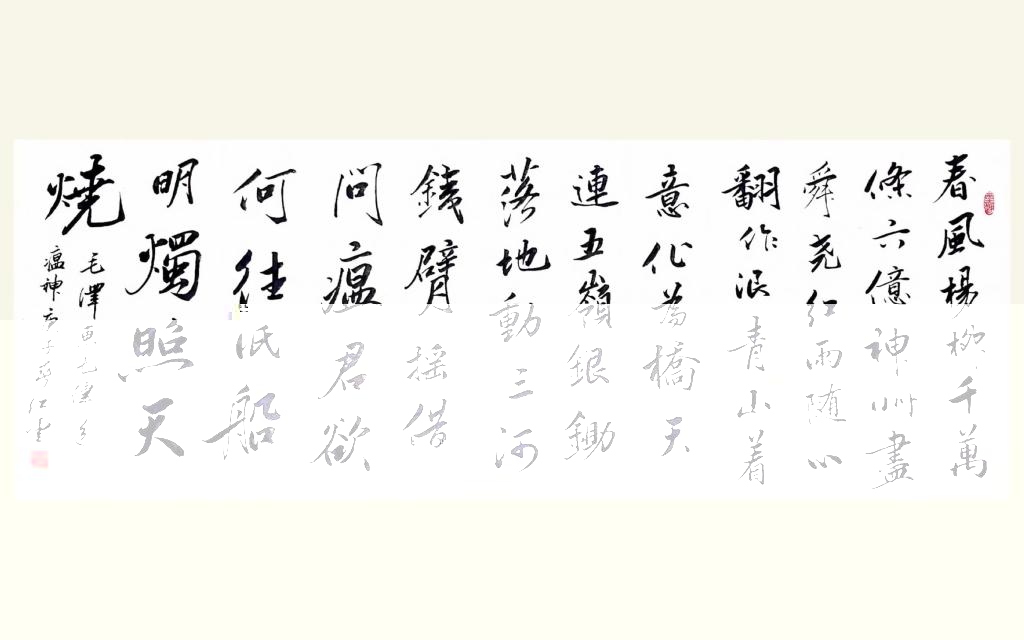 春風楊柳千萬
條六億神州盡
舜尧红雨随心
翻作浪青山着
意化為橋天
連五嶺銀鋤
落地動三河
鐵臂摇借
問瘟君欲
何往紙船
明燭照天
燒
毛澤東七律送
瘟神庚子